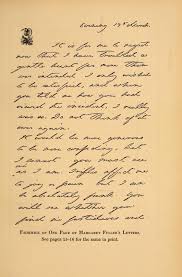 Evening 19th March.
It is for me to regret
now that I have troubled a
gentle heart far more than
was intended. I only wished
to be satisfied, and when
you told me how you had
viewed the incident, I really
was so. Do not think of it
ever again.
to be more generous
to be more confiding, but
I cannot
as I am
to give a pause, but I am
to be absolutely frank. You
will see whether you
find in
FACSIMILE OF ONE PAGE OF MARGARET FULLER'S LETTERS.
See pages 15-16 for the same in print.